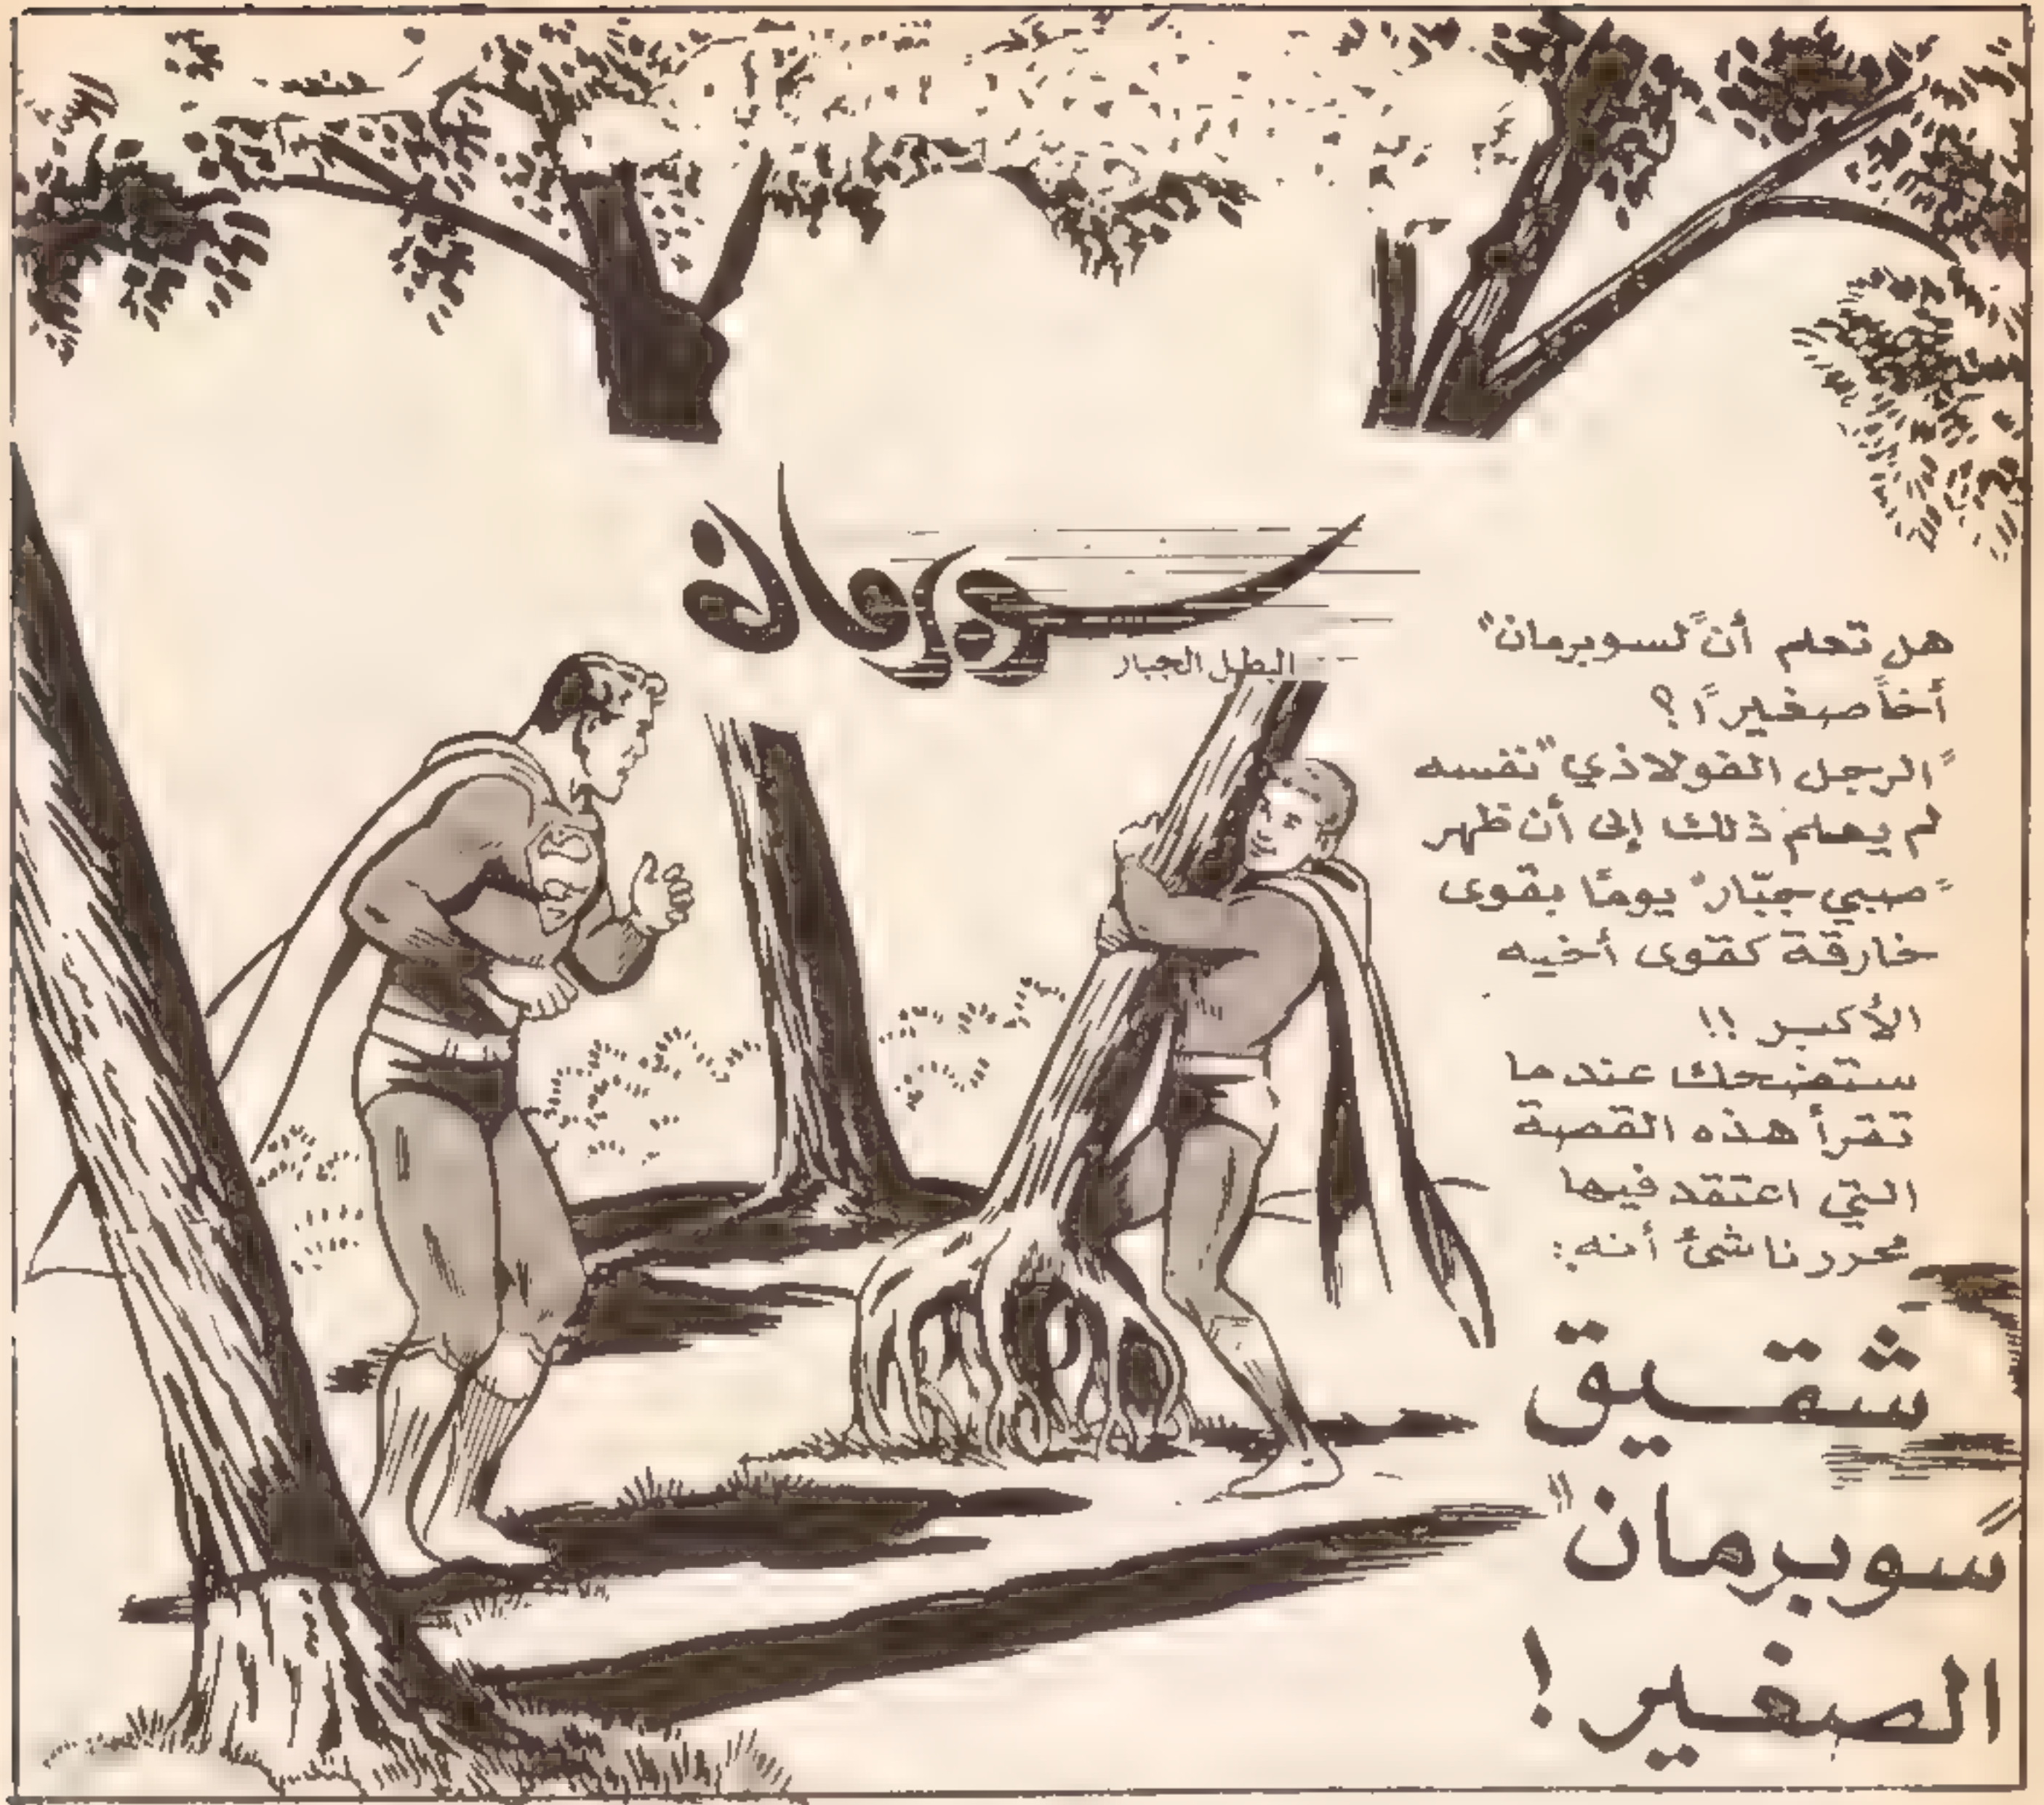 سوبرمان
البطل الجبار
هل تعلم أن "لسوبرمان"
أخاً صغيراً؟
"الرجل الفولاذي" نفسه
لم يعلم ذلك إلى أن ظهر
"صبي جبّار" يومًا بقوى
خارقة كقوى أخيه
الأكبر !!
ستضحك عندما
تقرأ هذه القصة
التي اعتقد فيها
محرر ناشئ أنه:
شقيق
"سوبرمان"
الصغير !